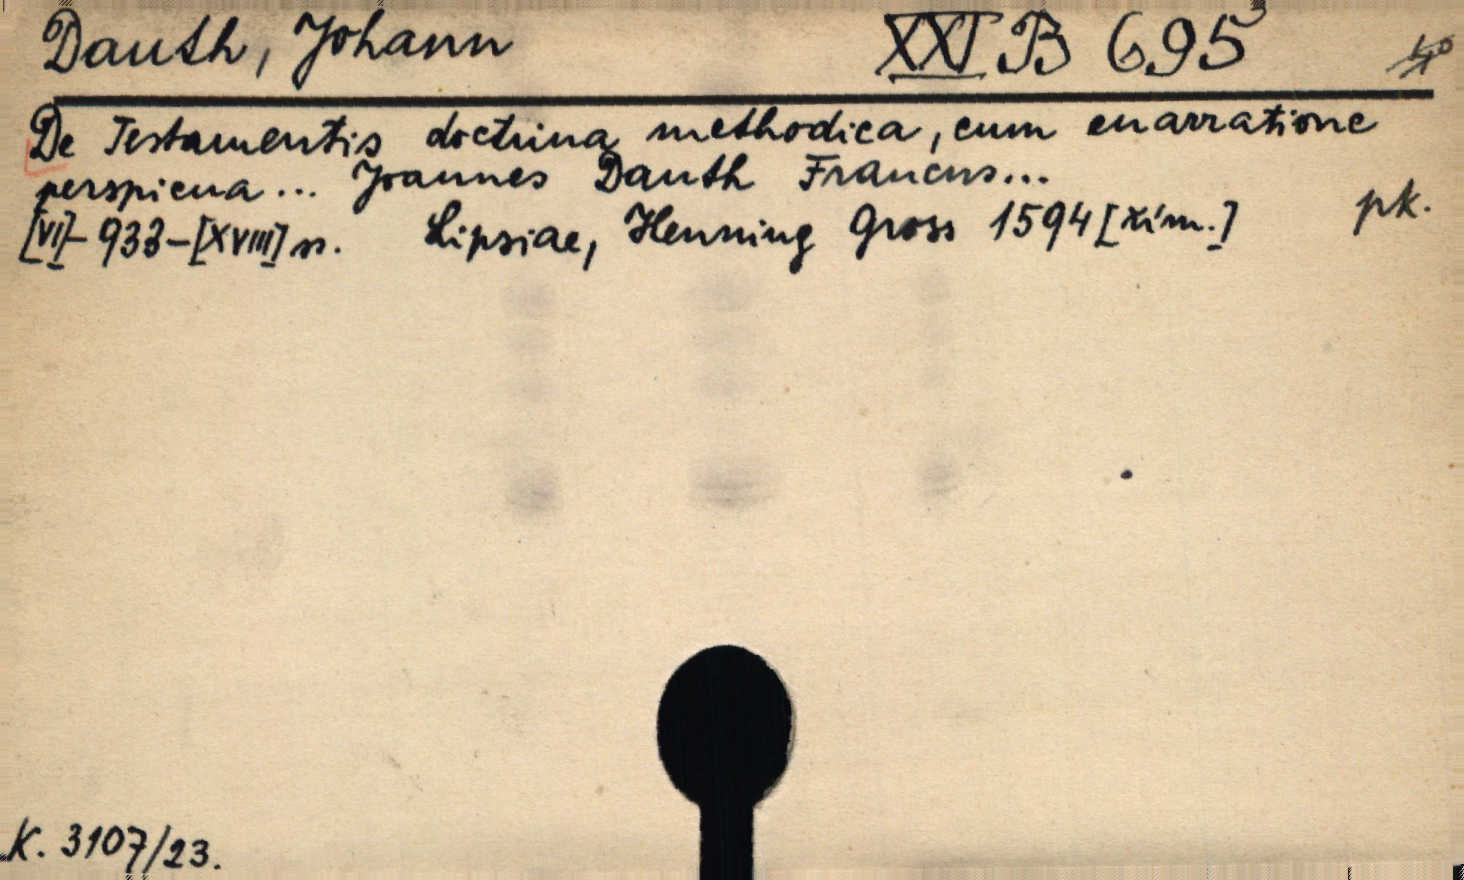 Dauth, Johann XXI B 695 4°
De Testamentis doctrina methodica, cum enarratione
perspicua... Joannes Dauth Francus...
[VI]-933-[XVIII] s. Lipsiae, Henning Gross 1594 [xim.] pk.
K. 3107/23.